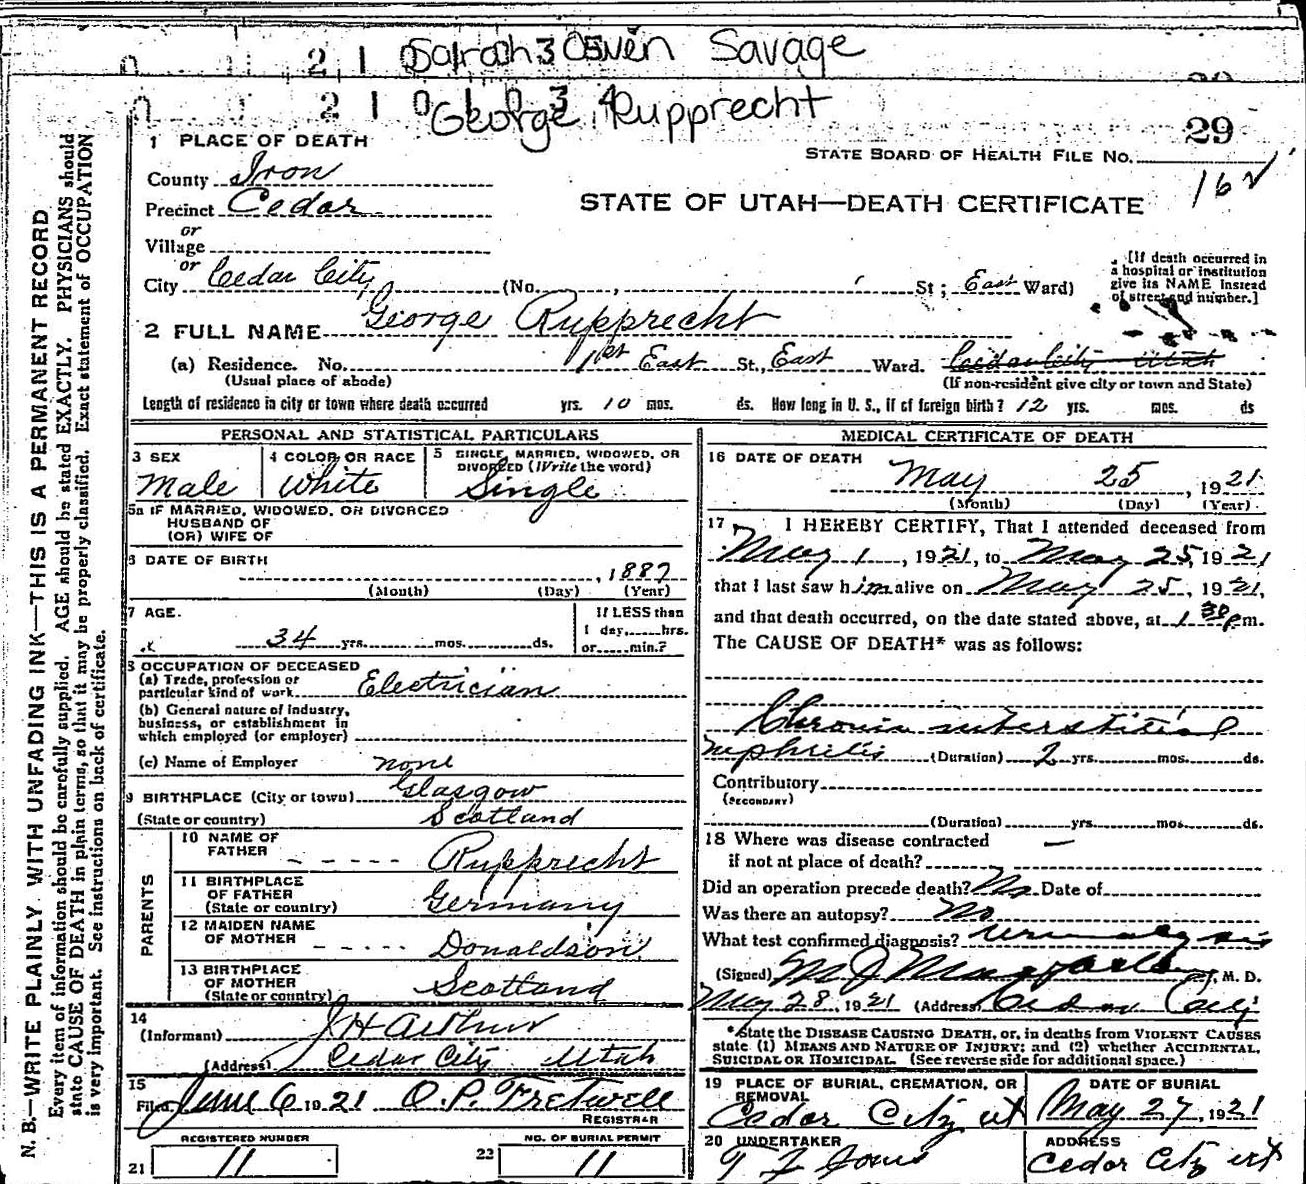 Sarah Owen Savage
George Rupprecht
29
1 PLACE OF DEATH
STATE BOARD OF HEALTH FILE NO.
162
County Iron
Precinct Cedar
STATE OF UTAH—DEATH CERTIFICATE
or
Village
or
City Cedar City (No. , St; East Ward)
[If death occurred in
a hospital or institution
give its NAME instead
of street and number.]
2 FULL NAME George Rupprecht
(a) Residence. No. 1st East St., East Ward. Cedar City Utah
(Usual place of abode) (If non-resident give city or town and State)
Length of residence in city or town where death occurred yrs. 10 mos. ds. How long in U. S., if of foreign birth? 12 yrs. mos. ds
PERSONAL AND STATISTICAL PARTICULARS
3 SEX 4 COLOR OR RACE 5 SINGLE, MARRIED, WIDOWED, OR
DIVORCED (Write the word)
Male White Single
5a IF MARRIED, WIDOWED, OR DIVORCED
HUSBAND OF
(OR) WIFE OF
6 DATE OF BIRTH
, 1887
(Month) (Day) (Year)
7 AGE. If LESS than
1 day, hrs.
34 yrs. mos. ds. or min.?
8 OCCUPATION OF DECEASED
(a) Trade, profession or
particular kind of work Electrician
(b) General nature of industry,
business, or establishment in
which employed (or employer)
(c) Name of Employer none
9 BIRTHPLACE (City or town) Glasgow
(State or country) Scotland
PARENTS
10 NAME OF
FATHER - - - - - Rupprecht
11 BIRTHPLACE
OF FATHER
(State or country) Germany
12 MAIDEN NAME
OF MOTHER - - - - - Donaldson
13 BIRTHPLACE
OF MOTHER
(State or country) Scotland
14
(Informant) J H Arthur
(Address) Cedar City Utah
15
Filed June 6 1921 O.P. Fretwell
REGISTRAR
REGISTERED NUMBER NO. OF BURIAL PERMIT
21 11 22 11
MEDICAL CERTIFICATE OF DEATH
16 DATE OF DEATH
May 25, 1921
(Month) (Day) (Year)
17 I HEREBY CERTIFY, That I attended deceased from
May 1, 1921, to May 25, 1921
that I last saw him alive on May 25, 1921,
and that death occurred, on the date stated above, at 1 30 p m.
The CAUSE OF DEATH* was as follows:
Chronic interstitial
nephritis (Duration) 2 yrs. mos. ds.
Contributory
(SECONDARY)
(Duration) yrs. mos. ds.
18 Where was disease contracted
if not at place of death? —
Did an operation precede death? No Date of
Was there an autopsy? No
What test confirmed diagnosis? urinalysis
(Signed) M J Macfarlane, M. D.
May 28, 1921 (Address) Cedar City
*State the DISEASE CAUSING DEATH, or, in deaths from VIOLENT CAUSES
state (1) MEANS AND NATURE OF INJURY; and (2) whether ACCIDENTAL,
SUICIDAL OR HOMICIDAL. (See reverse side for additional space.)
19 PLACE OF BURIAL, CREMATION, OR
REMOVAL
Cedar City ut
DATE OF BURIAL
May 27, 1921
20 UNDERTAKER
T J Jones
ADDRESS
Cedar City ut
N. B.—WRITE PLAINLY WITH UNFADING INK—THIS IS A PERMANENT RECORD
Every item of information should be carefully supplied. AGE should be stated EXACTLY. PHYSICIANS should
state CAUSE OF DEATH in plain terms, so that it may be properly classified. Exact statement of OCCUPATION
is very important. See instructions on back of certificate.